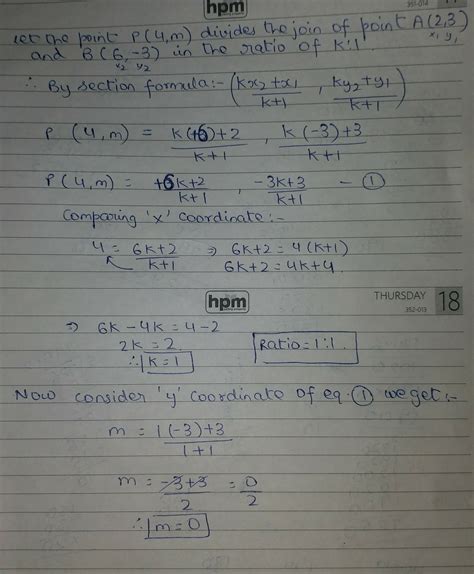 hpm
351-014
let the point P(4,m) divides the join of point A(2,3)
x₁ y₁
and B(6,-3) in the ratio of K:1
x₂ y₂
∴ By section formula:- (kx₂+x₁/k+1 , ky₂+y₁/k+1)
P (4,m) = k(+6)+2/k+1 , k(-3)+3/k+1
P(4,m) = +6k+2/k+1 , -3k+3/k+1 — ①
Comparing 'x' coordinate:-
4 = 6k+2/k+1 ⇒ 6k+2 = 4(k+1)
6k+2 = 4k+4.
hpm
THURSDAY 18
352-013
⇒ 6k-4k = 4-2
2k = 2.
∴ k=1
Ratio=1:1.
Now consider 'y' coordinate of eq. ① we get:-
m = 1(-3)+3/1+1
m = -3+3/2 = 0/2
∴ m=0